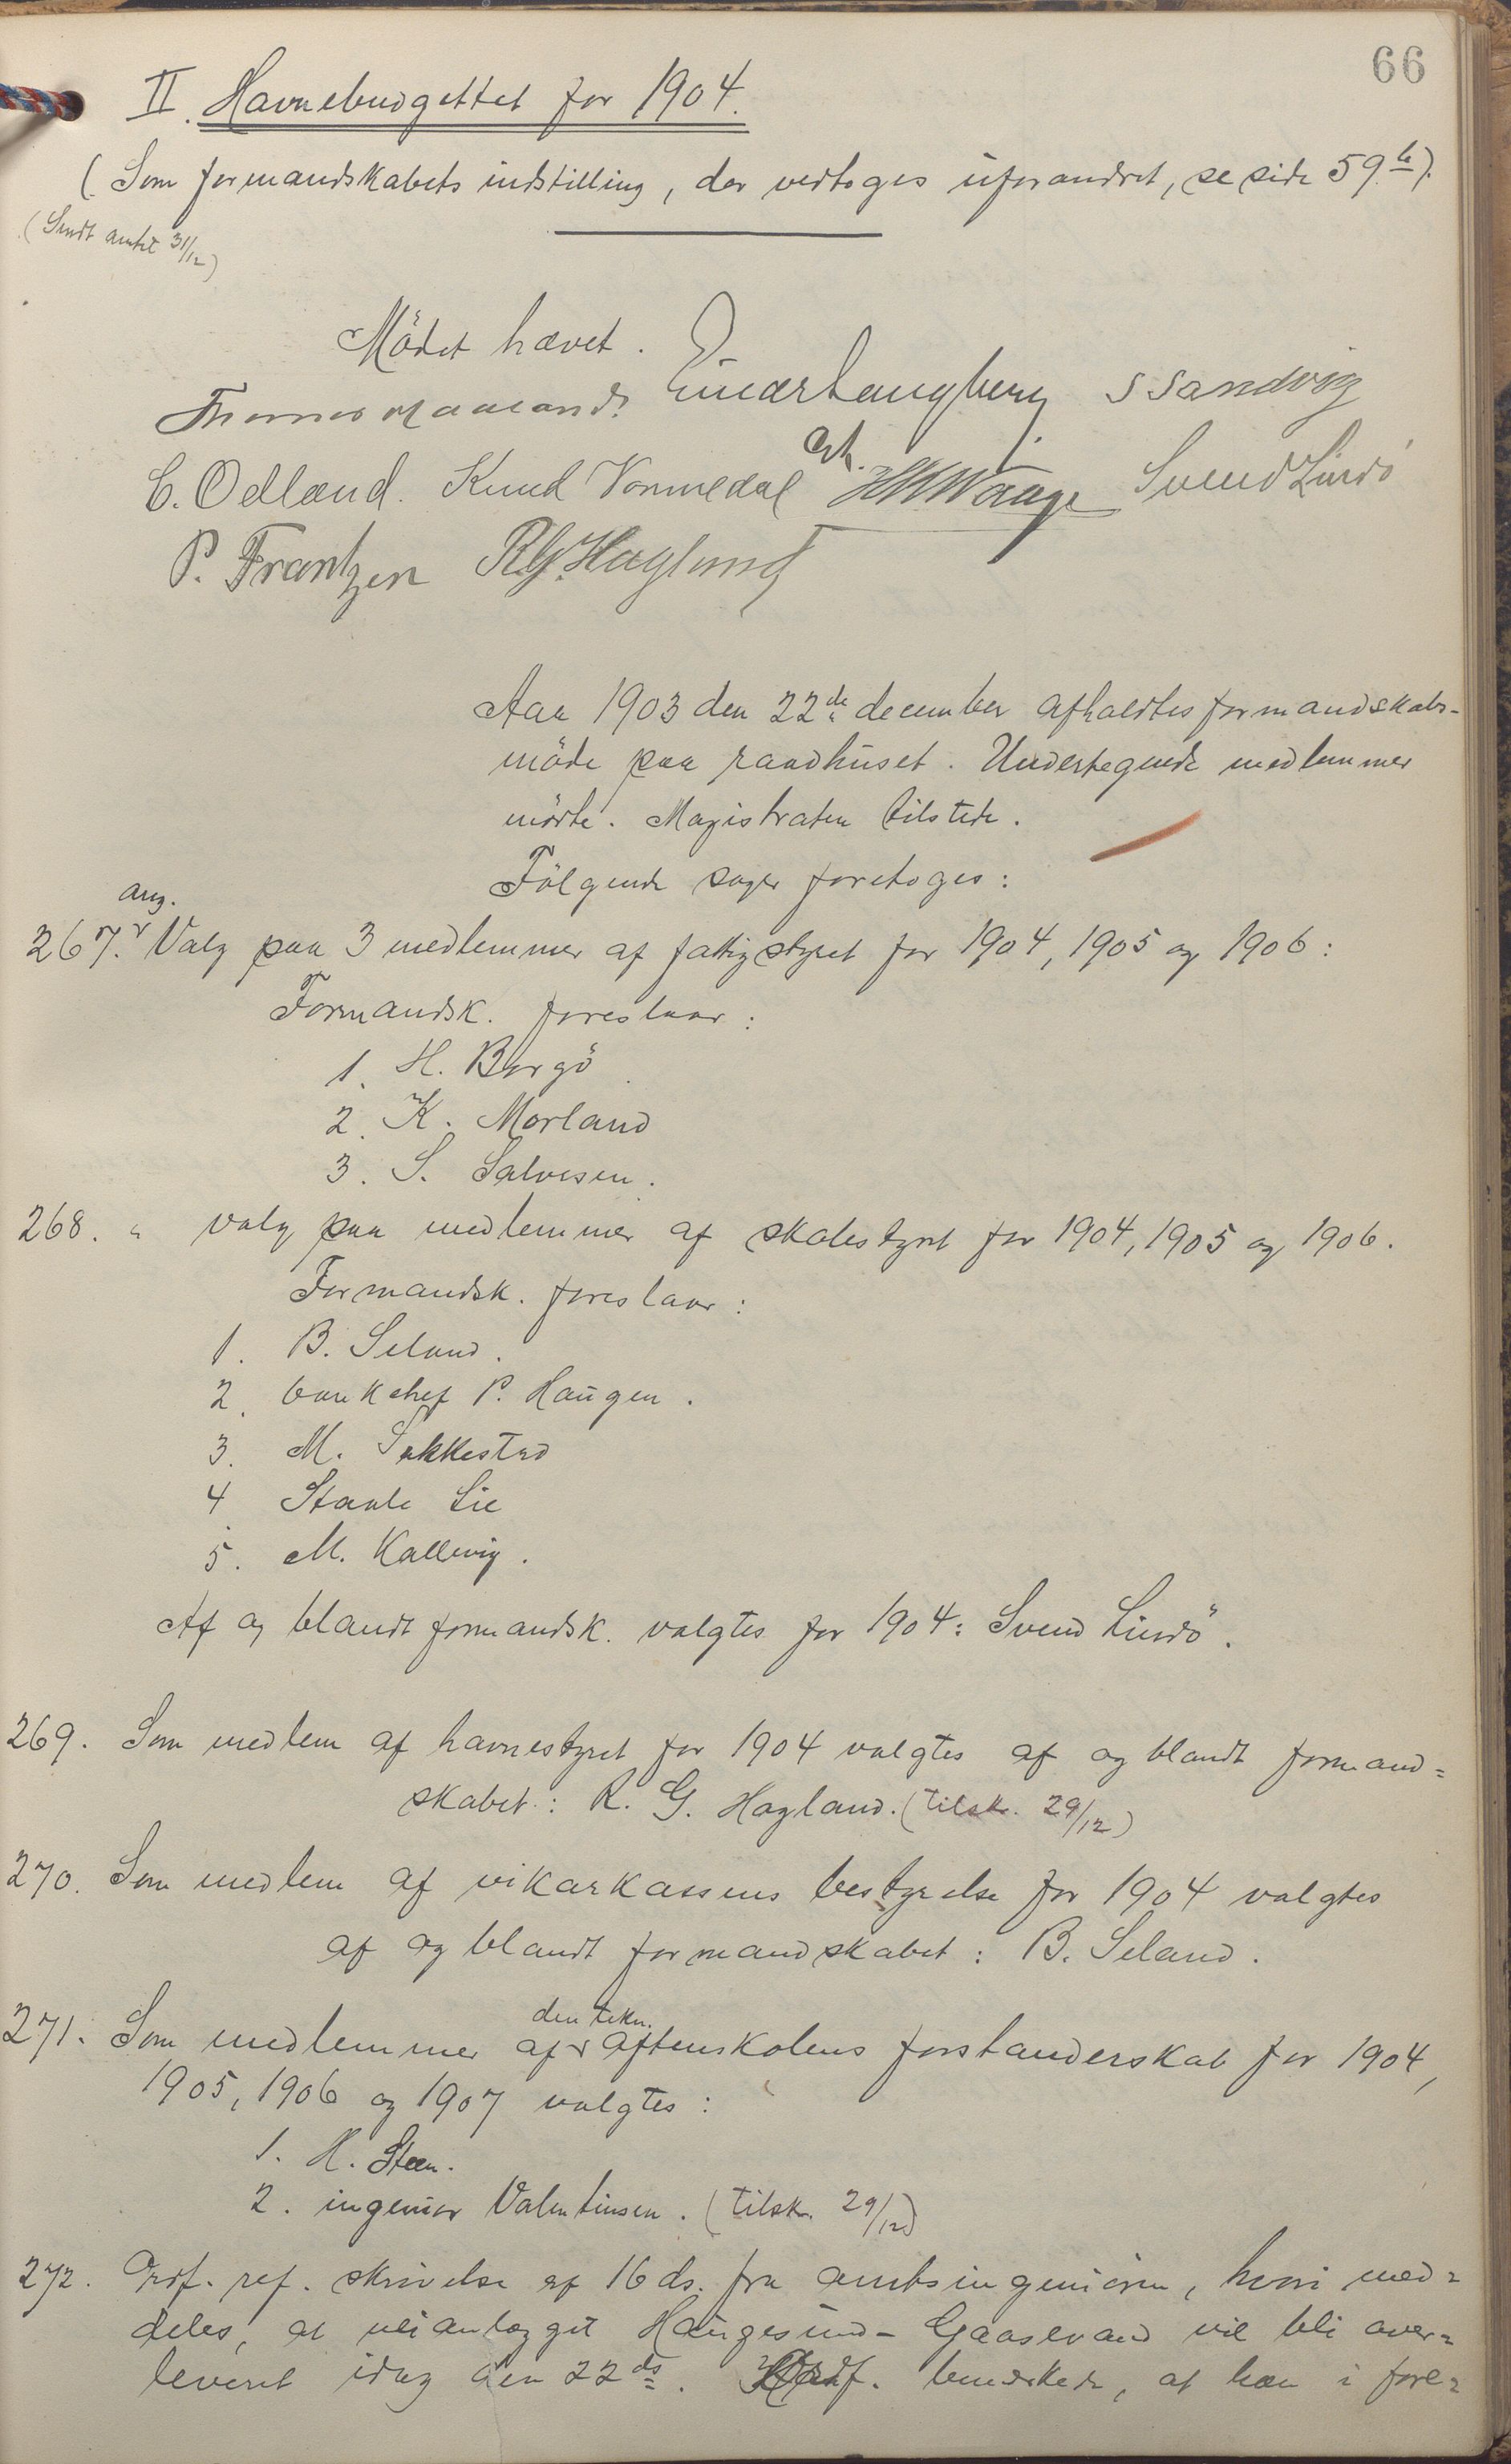 66
II. Havnebudgettet for 1904.
(Som formandskabets indstilling, der vedtoges uforandret, se side 59.b).
(Sendt amtet 31/12)
Mödet hævet.
Einar Langberg S Sandvig
C. Odland. Knud Vormedal H M Waage Svend Lindö
P. Frantzen R. G. Hagland
Aar 1903 den 22de december afholdtes formandskabs-
möde paa raadhuset. Undertegnede medlemmer
mödte. Magistraten tilstede.
Fölgende sager foretoges:
ang.
267. Valg paa 3 medlemmer af fattigstyret for 1904, 1905 og 1906:
Formandsk. foreslaar:
1. H. Borgö
2. K. Morland
3. S. Salvesen.
268. " valg paa medlemmer af skolestyret for 1904, 1905 og 1906.
Formandsk. foreslaar:
1. B. Seland.
2. bankchef P. Haugen.
3. M. Sukkestad
4 Staale Lie
5. M. Kallevig.
Af og blandt formandsk. valgtes for 1904: Svend Lindö.
269. Som medlem af havnestyret for 1904 valgtes af og blandt formand=
skabet: R. G. Hagland. (tilsk. 29/12)
270. Som medlem af vikarkassens bestyrelse for 1904 valgtes
af og blandt formandskabet: B. Seland.
den tekn.
271. Som medlemmer af aftenskolens forstanderskab for 1904,
1905, 1906 og 1907 valgtes:
1. H. Steen.
2. ingeniør Valentinsen. (tilsk. 29/12)
272. Ordf. ref. skrivelse af 16 ds. fra amtsingeniøren, hvori med=
deles, at veianlægget Haugesund - Gaaslevand vil bli over=
leveret idag den 22 ds. Ordf. bemerkede, at han i fore=